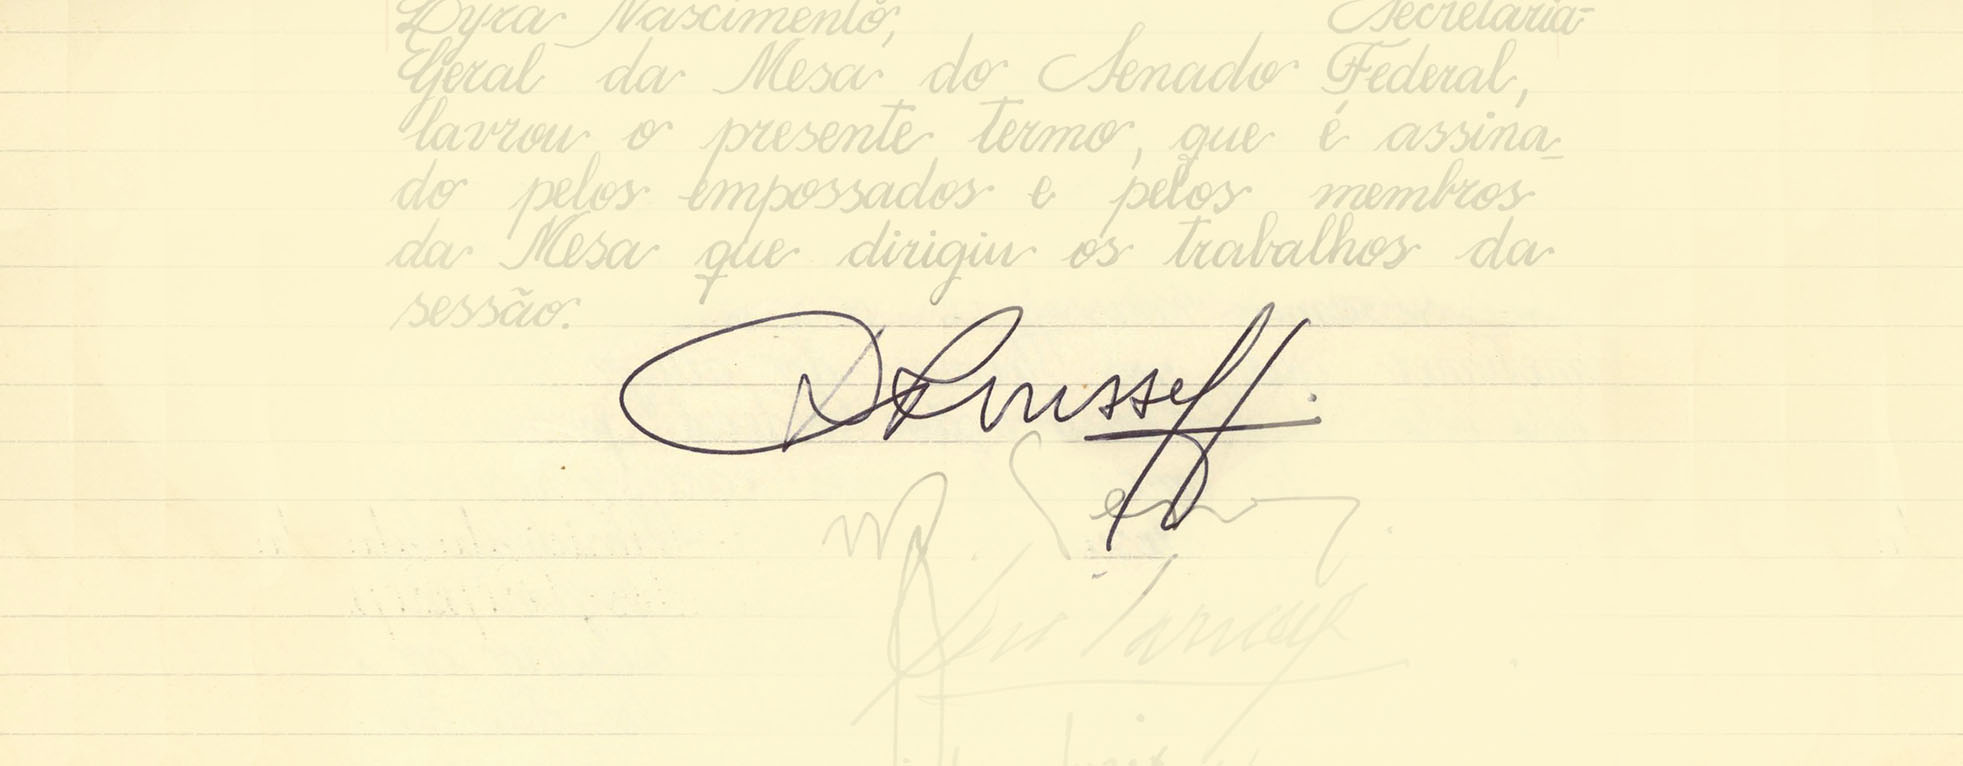 Lyra Nascimento, Secretaria-
Geral da Mesa do Senado Federal,
lavrou o presente termo, que é assina-
do pelos empossados e pelos membros
da Mesa que dirigiu os trabalhos da
sessão.
DRousseff.